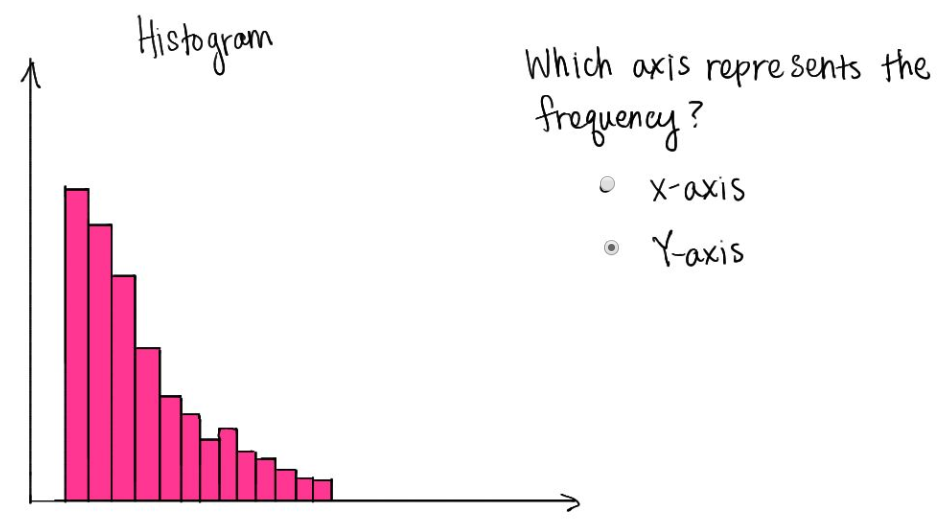 Histogram
Which axis represents the
frequency?
x-axis
Y-axis